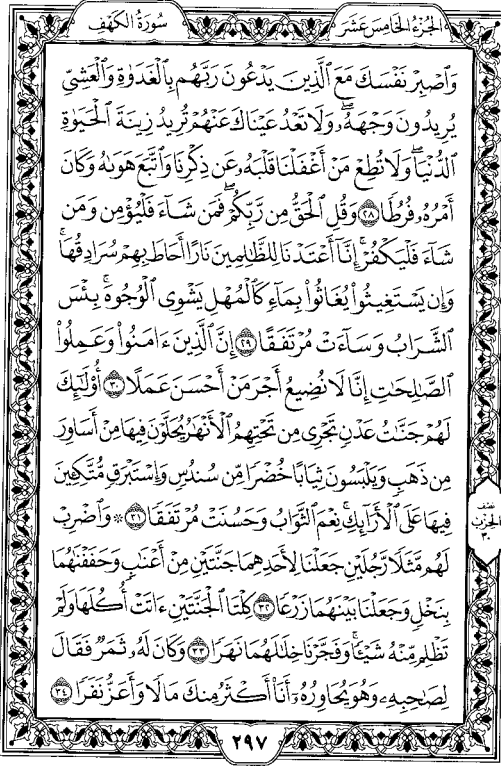 سُورَةُ الكَهْفِ
الجُزْءُ الخَامِسَ عَشَرَ
وَٱصْبِرْ نَفْسَكَ مَعَ ٱلَّذِينَ يَدْعُونَ رَبَّهُم بِٱلْغَدَوٰةِ وَٱلْعَشِىِّ
يُرِيدُونَ وَجْهَهُۥ ۖ وَلَا تَعْدُ عَيْنَاكَ عَنْهُمْ تُرِيدُ زِينَةَ ٱلْحَيَوٰةِ
ٱلدُّنْيَا ۖ وَلَا تُطِعْ مَنْ أَغْفَلْنَا قَلْبَهُۥ عَن ذِكْرِنَا وَٱتَّبَعَ هَوَىٰهُ وَكَانَ
أَمْرُهُۥ فُرُطًا ٢٨ وَقُلِ ٱلْحَقُّ مِن رَّبِّكُمْ ۖ فَمَن شَآءَ فَلْيُؤْمِن وَمَن
شَآءَ فَلْيَكْفُرْ ۚ إِنَّآ أَعْتَدْنَا لِلظَّـٰلِمِينَ نَارًا أَحَاطَ بِهِمْ سُرَادِقُهَا ۚ
وَإِن يَسْتَغِيثُوا۟ يُغَاثُوا۟ بِمَآءٍ كَٱلْمُهْلِ يَشْوِى ٱلْوُجُوهَ ۚ بِئْسَ
ٱلشَّرَابُ وَسَآءَتْ مُرْتَفَقًا ٢٩ إِنَّ ٱلَّذِينَ ءَامَنُوا۟ وَعَمِلُوا۟
ٱلصَّـٰلِحَـٰتِ إِنَّا لَا نُضِيعُ أَجْرَ مَنْ أَحْسَنَ عَمَلًا ٣٠ أُو۟لَـٰٓئِكَ
لَهُمْ جَنَّـٰتُ عَدْنٍ تَجْرِى مِن تَحْتِهِمُ ٱلْأَنْهَـٰرُ يُحَلَّوْنَ فِيهَا مِنْ أَسَاوِرَ
مِن ذَهَبٍ وَيَلْبَسُونَ ثِيَابًا خُضْرًا مِّن سُندُسٍ وَإِسْتَبْرَقٍ مُّتَّكِـِٔينَ
فِيهَا عَلَى ٱلْأَرَآئِكِ ۚ نِعْمَ ٱلثَّوَابُ وَحَسُنَتْ مُرْتَفَقًا ٣١ ۞ وَٱضْرِبْ
لَهُم مَّثَلًا رَّجُلَيْنِ جَعَلْنَا لِأَحَدِهِمَا جَنَّتَيْنِ مِنْ أَعْنَـٰبٍ وَحَفَفْنَـٰهُمَا
بِنَخْلٍ وَجَعَلْنَا بَيْنَهُمَا زَرْعًا ٣٢ كِلْتَا ٱلْجَنَّتَيْنِ ءَاتَتْ أُكُلَهَا وَلَمْ
تَظْلِم مِّنْهُ شَيْـًٔا ۚ وَفَجَّرْنَا خِلَـٰلَهُمَا نَهَرًا ٣٣ وَكَانَ لَهُۥ ثَمَرٌ فَقَالَ
لِصَـٰحِبِهِۦ وَهُوَ يُحَاوِرُهُۥٓ أَنَا۠ أَكْثَرُ مِنكَ مَالًا وَأَعَزُّ نَفَرًا ٣٤
نصف
الحزب
٣٠
٢٩٧